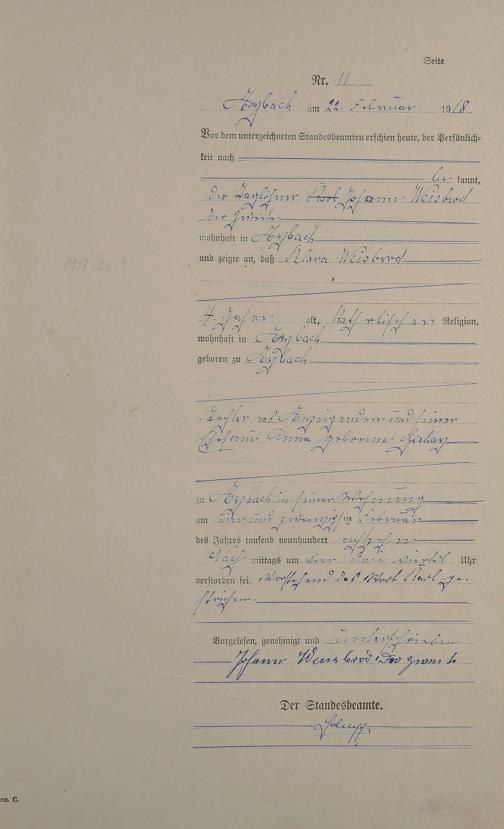 Seite
Nr. 11
Asbach am 22. Februar 1918.
Vor dem unterzeichneten Standesbeamten erschien heute, der Persönlich-
keit nach
be kannt,
der Taglöhner Karl Johann Weisbrod
der Zweite
wohnhaft in Asbach
und zeigte an, daß Klara Weisbrod
4 Jahre alt, katholischer Religion,
wohnhaft in Asbach
geboren zu Asbach
1913-24-9
Tochter des Anzeigenden und seiner
Ehefrau Anna geborene
zu Asbach in seiner Wohnung
am ein und zwanzigsten Februar
des Jahres tausend neunhundert achtzehn
Nach mittags um vier drei viertel Uhr
verstorben sei. Vorstehend das Wort Karl ge-
strichen.
Vorgelesen, genehmigt und unterschrieben
Johann Weisbrod der zweite
Der Standesbeamte.
rm. C.